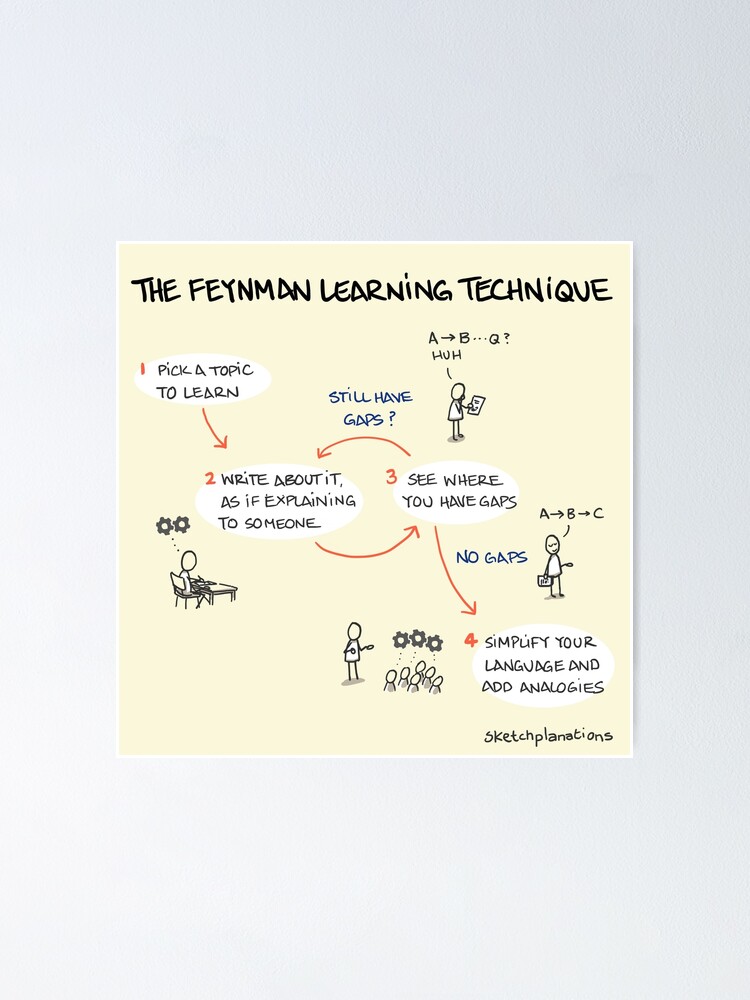 THE FEYNMAN LEARNING TECHNIQUE
A→B···Q?
HUH
1 PICK A TOPIC
TO LEARN
STILL HAVE
GAPS?
2 WRITE ABOUT IT,
AS IF EXPLAINING
TO SOMEONE
3 SEE WHERE
YOU HAVE GAPS
A→B→C
NO GAPS
4 SIMPLIFY YOUR
LANGUAGE AND
ADD ANALOGIES
sketchplanations